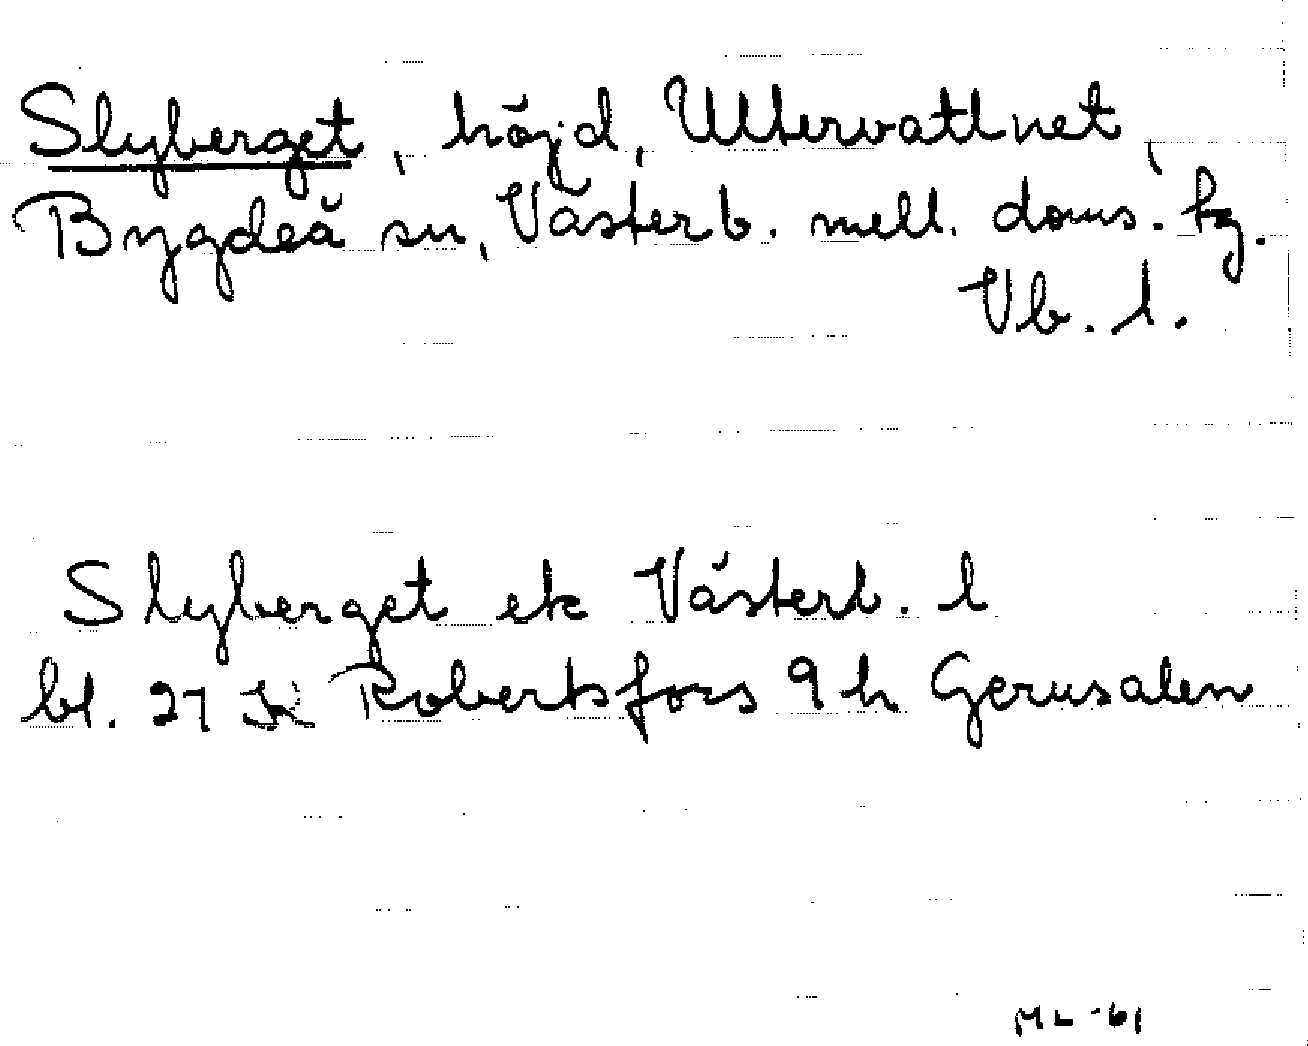 Slyberget, höjd, Ultervattnet,
Bygdeå sn, Västerb. mell. doms. tg.
Vb. l.
Slyberget ek Västerb. l
bl. 21 K Robertsfors 9 h Gerusalem
ML -61